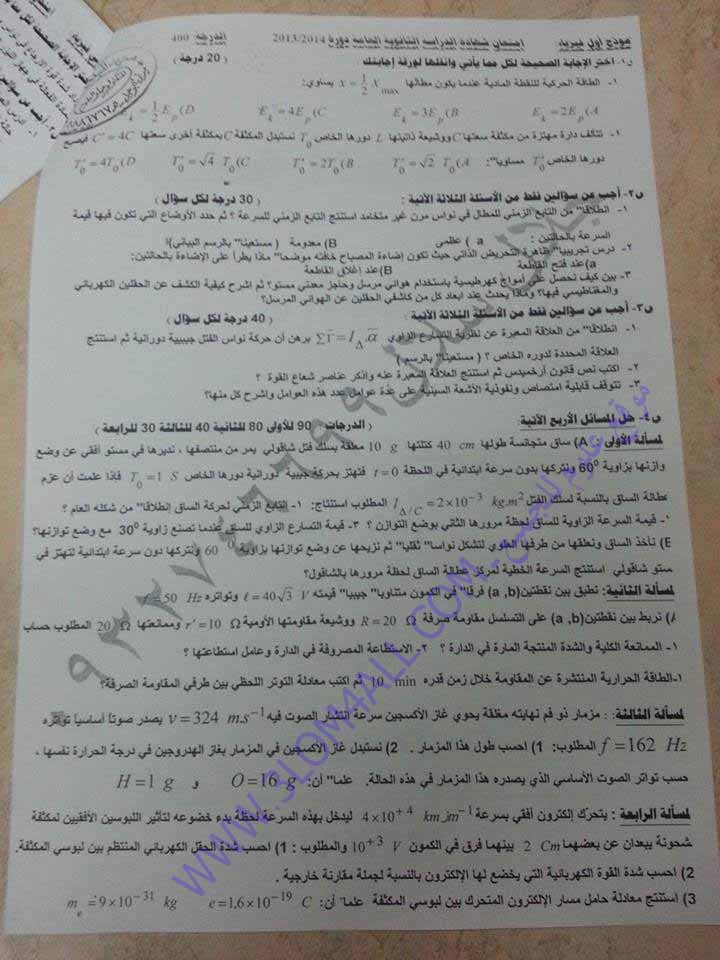 نموذج أول فيزياء امتحان شهادة الدراسة الثانوية العامة دورة 2013/2014 الدرجة 400
س1- اختر الإجابة الصحيحة لكل مما يأتي وانقلها لورقة إجابتك ( 20 درجة )
١- الطاقة الحركية للنقطة المادية عندما يكون مطالها x = 1/2 Xmax يساوي:
E_k = 2E_p (A E_k = 3E_p (B E_k = 4E_p (C E_k = 1/2 E_p (D
١- تتألف دارة مهتزة من مكثفة سعتها C ووشيعة ذاتيتها L دورها الخاص T0 نستبدل المكثفة C بمكثفة أخرى سعتها C' = 4C فيصبح
دورها الخاص T0' مساويا": T0' = √2 T0 (A T0' = 2T0 (B T0' = √4 T0 (C T0' = 4T0 (D
س2- أجب عن سؤالين فقط من الأسئلة الثلاثة الآتية : ( 30 درجة لكل سؤال )
١- انطلاقا" من التابع الزمني للمطال في نواس مرن غير متخامد استنتج التابع الزمني للسرعة ؟ ثم حدد الأوضاع التي تكون فيها قيمة
السرعة بالحالتين : a ) عظمى B) معدومة ( مستعينا" بالرسم البياني)
٢- درس تجريبيا" ظاهرة التحريض الذاتي حيث تكون إضاءة المصباح خافتة موضحا" ماذا يطرأ على الإضاءة بالحالتين:
a) عند فتح القاطعة B) عند إغلاق القاطعة
٣- بين كيف تحصل على أمواج كهرطيسية باستخدام هوائي مرسل وحاجز معدني مستو؟ ثم اشرح كيفية الكشف عن الحقلين الكهربائي
والمغناطيسي فيها؟ وماذا يحدث عند ابعاد كل من كاشفي الحقلين عن الهوائي المرسل؟
س3- أجب عن سؤالين فقط من الأسئلة الثلاثة الآتية : ( 40 درجة لكل سؤال )
١- انطلاقا" من العلاقة المعبرة عن نظرية التسارع الزاوي ΣΓ̅ = I_Δ . α̅ برهن أن حركة نواس الفتل جيبية دورانية ثم استنتج
العلاقة المحددة لدوره الخاص ؟ ( مستعينا" بالرسم )
٢- اكتب نص قانون أرخميدس ثم استنتج العلاقة المعبرة عنه واذكر عناصر شعاع القوة ؟
٣- تتوقف قابلية امتصاص ونفوذية الأشعة السينية على عدة عوامل عدد هذه العوامل واشرح كل منها؟
س٤- حل المسائل الأربع الآتية: ( الدرجات : 90 للأولى 80 للثانية 40 للثالثة 30 للرابعة )
مسألة الأولى : (A ساق متجانسة طولها 40 cm كتلتها 10 g معلقة بسلك فتل شاقولي يمر من منتصفها ، نديرها في مستو أفقي عن وضع
وازنها بزاوية 60° ونتركها بدون سرعة ابتدائية في اللحظة t = 0 فتهتز بحركة جيبية دورانية دورها الخاص T0 = 1 S فإذا علمت أن عزم
عطالة الساق بالنسبة لسلك الفتل I_Δ/C = 2×10⁻³ kg.m² المطلوب استنتاج: ١- التابع الزمني لحركة الساق انطلاقا" من شكله العام ؟
- قيمة السرعة الزاوية للساق لحظة مرورها الثاني بوضع التوازن ؟ ٣- قيمة التسارع الزاوي للساق عندما تصنع زاوية 30° مع وضع توازنها؟
نأخذ الساق ونعلقها من طرفها العلوي لتشكل نواسا" ثقليا" ثم نزيحها عن وضع توازنها بزاوية 60° ونتركها دون سرعة ابتدائية لتهتز في
مستو شاقولي استنتج السرعة الخطية لمركز عطالة الساق لحظة مرورها بالشاقول؟
لمسألة الثانية: نطبق بين نقطتين (a, b) فرقا" في الكمون متناوبا" جيبيا" قيمته ℓ = 40√3 V وتواتره f = 50 Hz
نربط بين نقطتين (a, b) على التسلسل مقاومة صرفة R = 20 Ω ووشيعة مقاومتها الأومية r' = 10 Ω وممانعتها 20 Ω المطلوب حساب
١- الممانعة الكلية والشدة المنتجة المارة في الدارة ؟ ٢- الاستطاعة المصروفة في الدارة وعامل استطاعتها ؟
١- الطاقة الحرارية المنتشرة عن المقاومة خلال زمن قدره 10 min ثم اكتب معادلة التوتر اللحظي بين طرفي المقاومة الصرفة؟
لمسألة الثالثة: : مزمار ذو فم نهايته مغلقة يحوي غاز الأكسجين سرعة انتشار الصوت فيه v = 324 m.s⁻¹ يصدر صوتا أساسيا تواتره
f = 162 Hz المطلوب: 1) احسب طول هذا المزمار . 2) نستبدل غاز الأكسجين في المزمار بغاز الهدروجين في درجة الحرارة نفسها ،
حسب تواتر الصوت الأساسي الذي يصدره هذا المزمار في هذه الحالة. علما" أن: O = 16 g و H = 1 g
لمسألة الرابعة : يتحرك إلكترون أفقي بسرعة 4×10⁺⁴ km.m⁻¹ ليدخل بهذه السرعة لحظة بدء خضوعه لتأثير اللبوسين الأفقيين لمكثفة
شحونة يبعدان عن بعضهما 2 Cm بينهما فرق في الكمون 10⁺³ V والمطلوب : 1) احسب شدة الحقل الكهربائي المنتظم بين لبوسي المكثفة.
2) احسب شدة القوة الكهربائية التي يخضع لها الإلكترون بالنسبة لجملة مقارنة خارجية .
3) استنتج معادلة حامل مسار الإلكترون المتحرك بين لبوسي المكثفة علما" أن: e = 1,6×10⁻¹⁹ C m_e = 9×10⁻³¹ kg
WWW.3LOM4ALL.COM